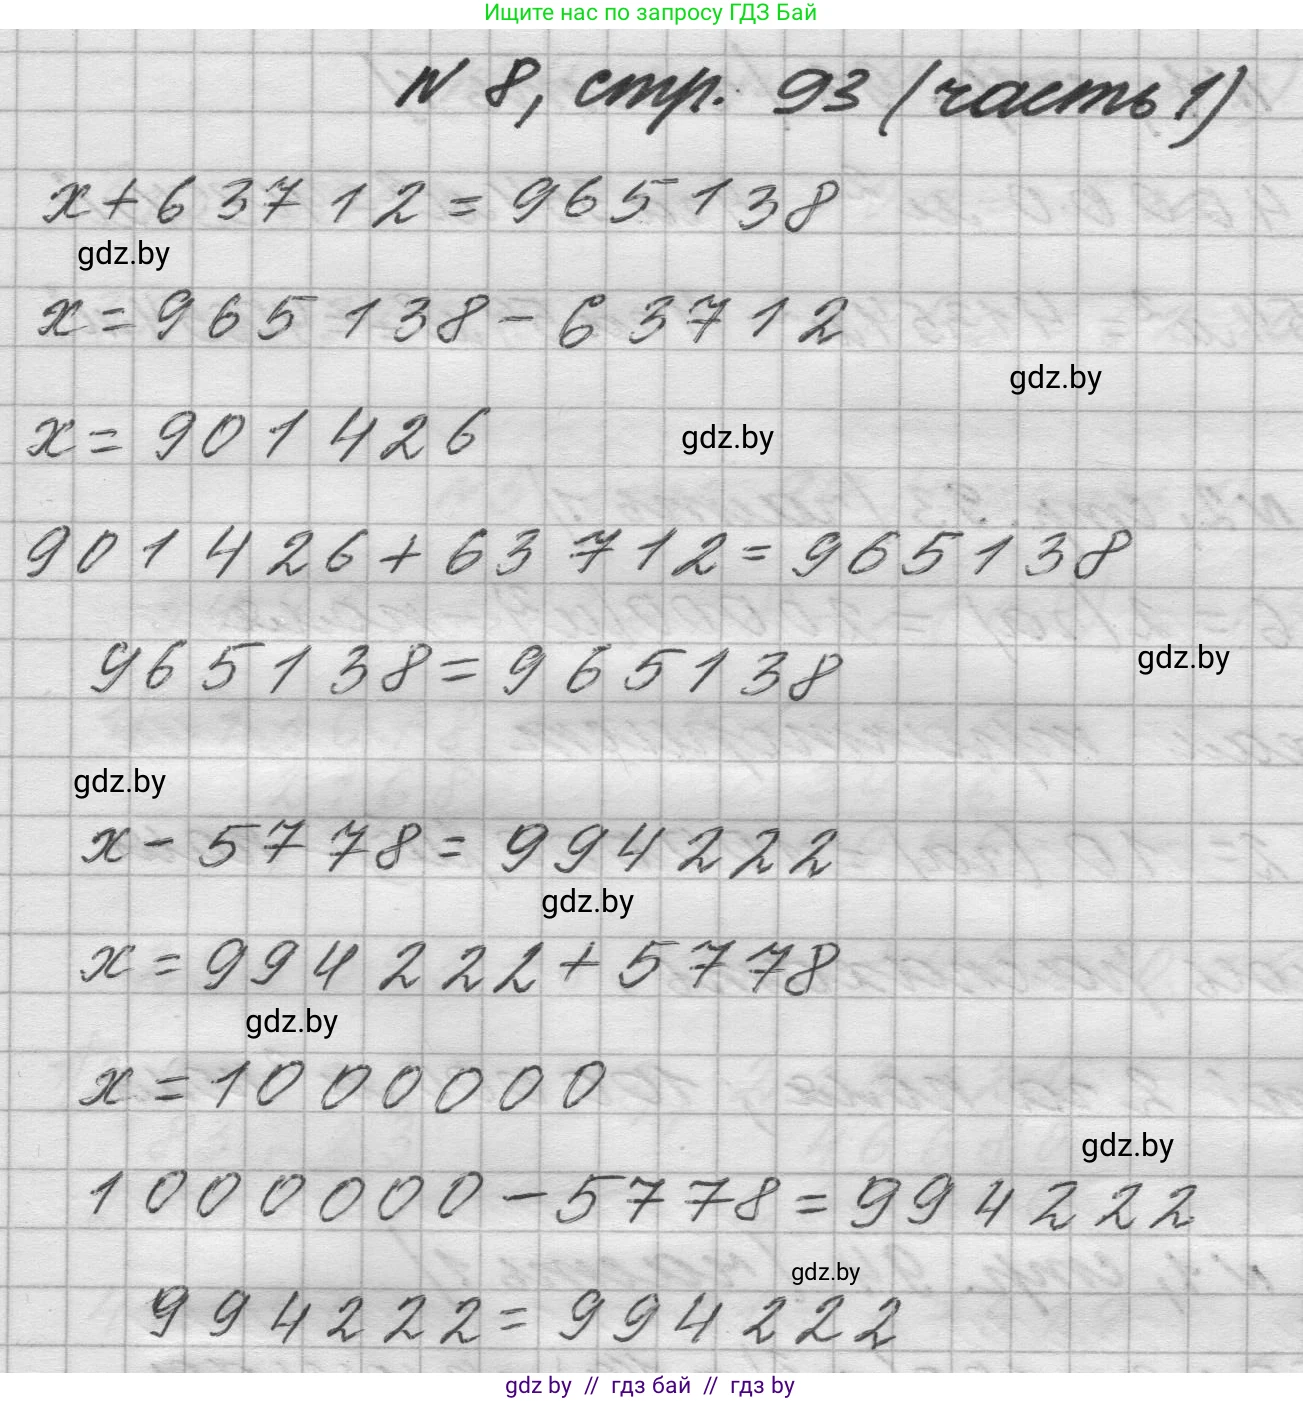 Ищите нас по запросу ГДЗ Бай
N 8, стр. 93 (часть 1)
x+63712=965138
gdz.by
x=965138-63712
gdz.by
x=901426
gdz.by
901426+63712=965138
965138=965138
gdz.by
gdz.by
x-5778=994222
gdz.by
x=994222+5778
gdz.by
x=1000000
gdz.by
1000000-5778=994222
gdz.by
994222=994222
gdz by // гдз бай // гдз by